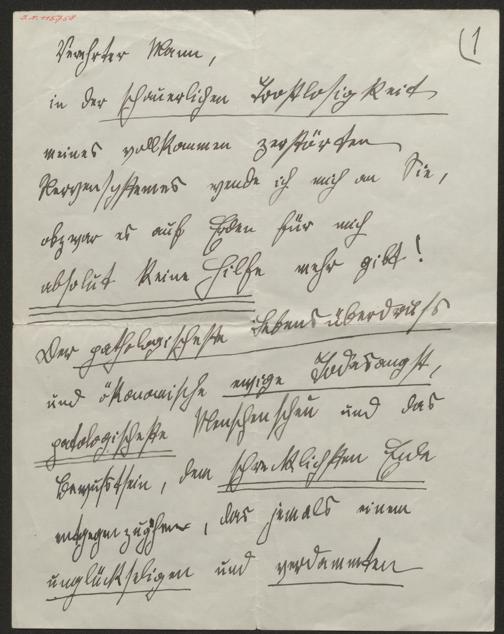 I.N. 115758
(1
Verehrter Mann,
in der schauerlichen Trostlosigkeit
meines vollkommen zerstörten
Nervensystemes wende ich mich an Sie,
obzwar es auf Erden für mich
absolut keine Hilfe mehr gibt!
Der pathologischeste Lebensüberdruss
und ökonomische ewige Todesangst,
patologischeste Menschenscheu und das
Bewusstsein, dem schrecklichsten Ende
entgegenzugehen, das jemals einem
unglückseligen und verdammten